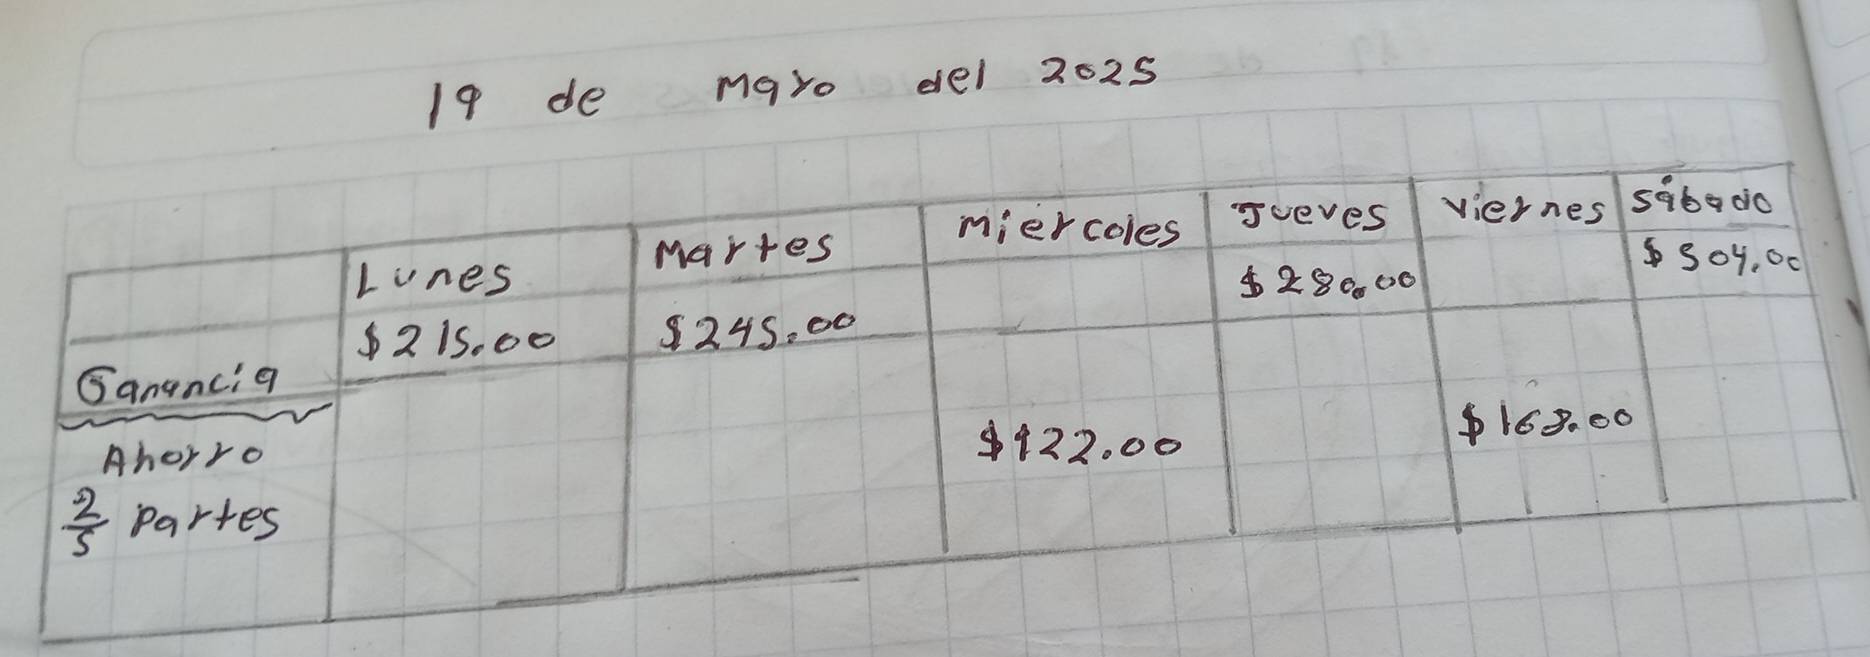 19 de Mayo del 2025
Lunes Martes Miércoles Jueves Viernes Sábado
Ganancia $215.00 $245.00 $280.00 $504.00
Ahorro $122.00 $168.00
2/5 Partes